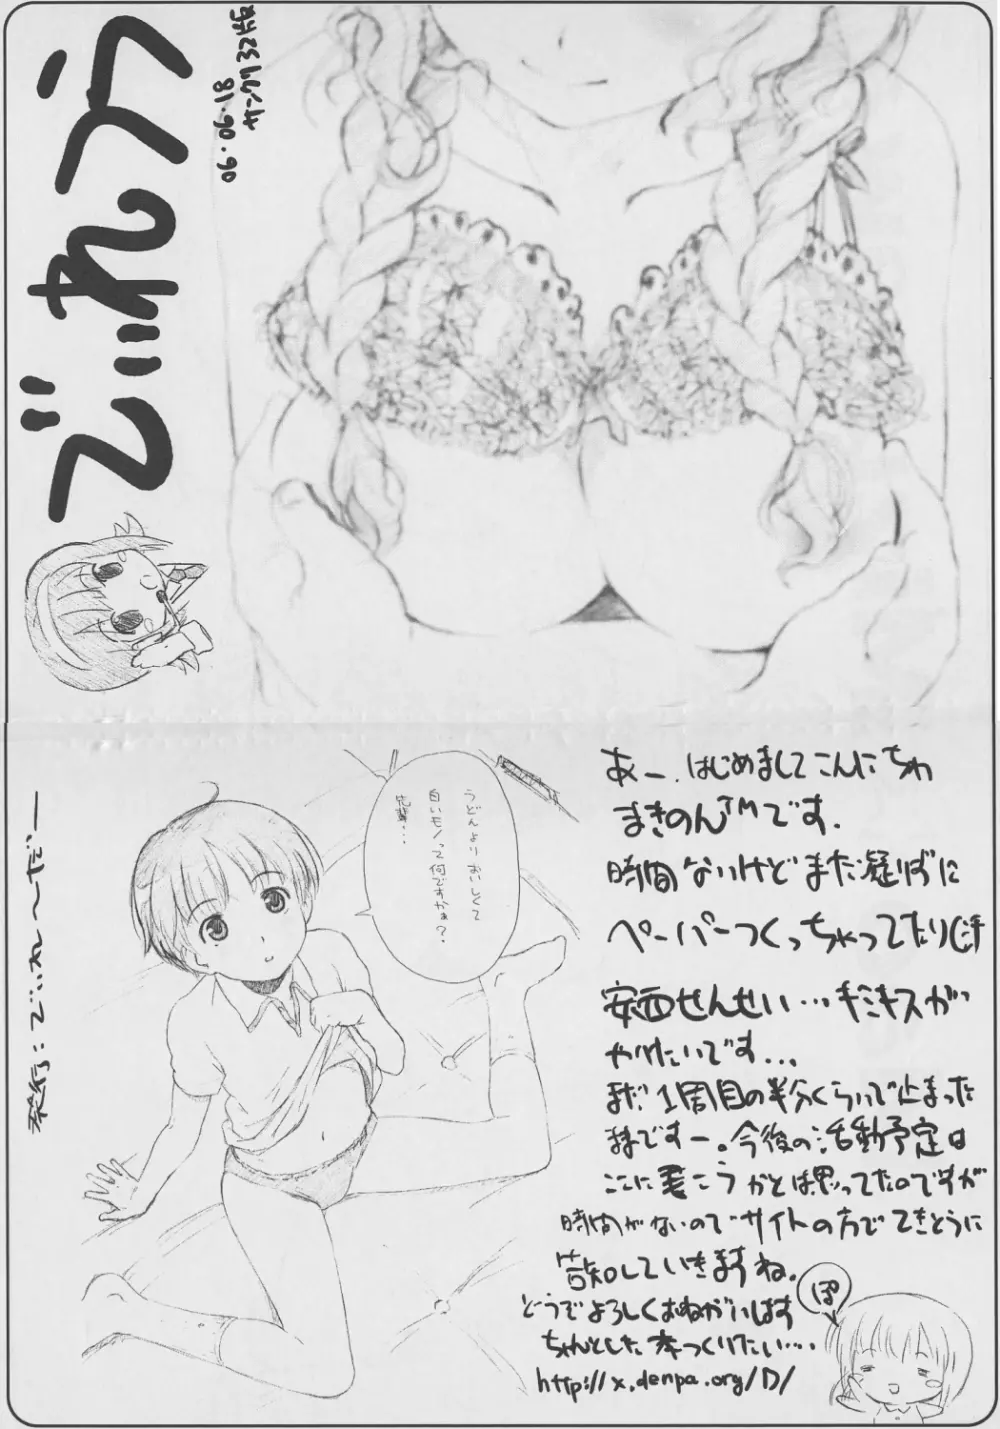 でいれう
06・06・18
サンクリ32版
あー、はじめましてこんにちわ
まきのん™です。
時間ないけどまた凝りずに
ペーパーつくっちゃってたりし汗
安西せんせい…キミキスがっ
やりたいです…
まだ1周目の半分くらいで止まった
ままですー。今後の活動予定は
ここに書こうかとは思ってたのですが
時間がないのでサイトの方でてきとうに
告知していきますね。
どうぞよろしくおねがいします
ちゃんとした本つくりたい…
http://x.denpa.org/D/
ぽ
うどんよりおいしくて
白いモノって何ですかぁ?
先輩…
発行：でいれ〜だー